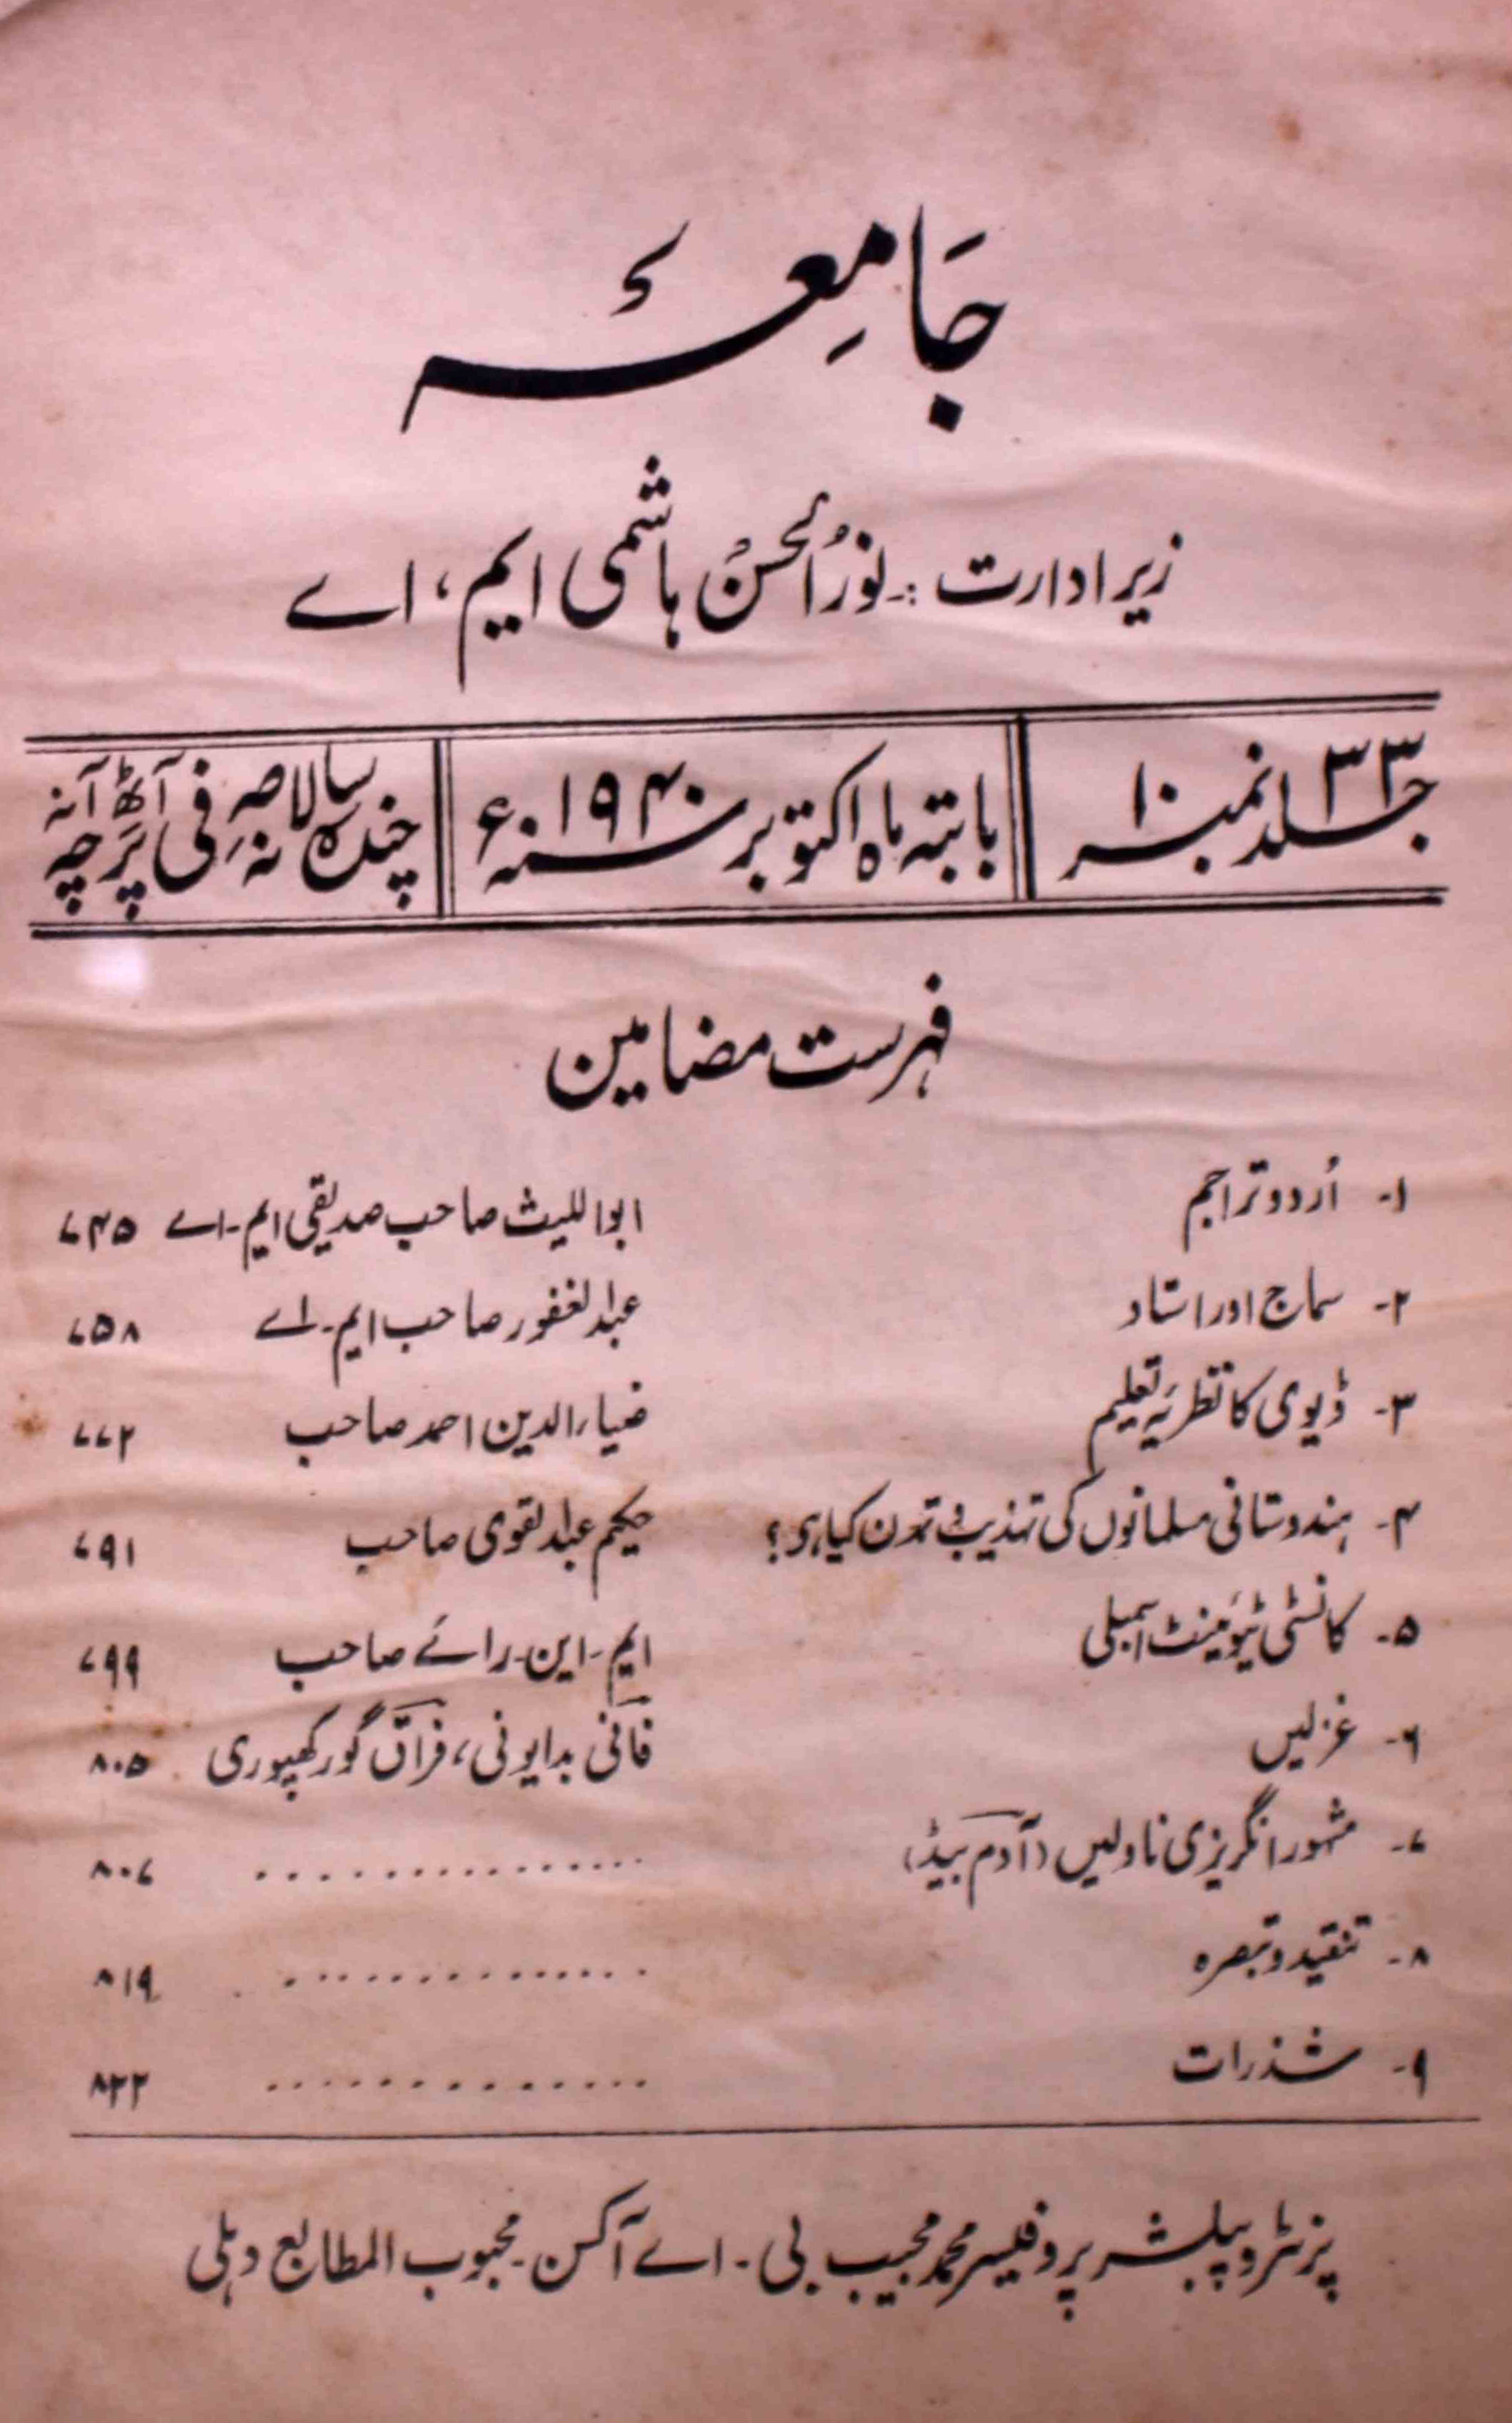 جَامِعہٴ
زیر ادارت :۔ نورُ الحسنُ ہاشمی ایم، اے
جلد ۳۳ نمبر ۱۰
بابتہ ماہ اکتوبر سنہ ۱۹۴۰ء
چندہ سالانہ صہ فی پرچہ آٹھ آنہ
فہرست مضامین
۱۔ اُردو تراجم ابواللیث صاحب صدیقی ایم۔اے ۷۴۵
۲۔ سماج اور استاد عبدالغفور صاحب ایم۔اے ۷۵۸
۳۔ ڈیوی کا نظریۂ تعلیم ضیاء الدین احمد صاحب ۷۷۲
۴۔ ہندوستانی مسلمانوں کی تہذیب و تمدن کیا ہی؟ حکیم عبدالقوی صاحب ۷۹۱
۵۔ کانسٹی ٹیوئینٹ اسمبلی ایم۔این۔رائے صاحب ۷۹۹
۶۔ غزلیں فانی بدایونی، فراق گورکھپوری ۸۰۵
۷۔ مشہور انگریزی ناولیں (آدم بیڈ) .............. ۸۰۷
۸۔ تنقید و تبصرہ .............. ۸۱۹
۹۔ شذرات .............. ۸۲۲
پرنٹر و پبلشر پروفیسر محمد مجیب بی۔اے آکسن۔ محبوب المطابع دہلی